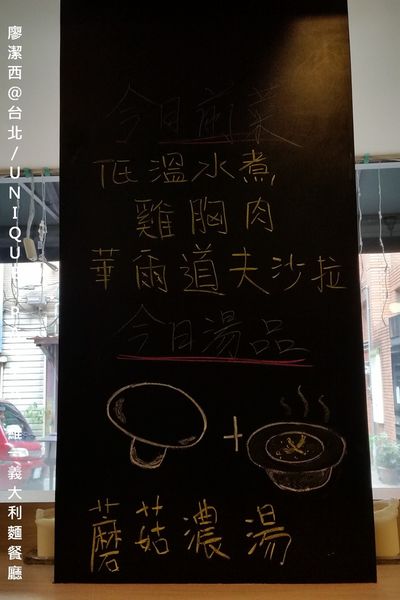 今日前菜
低溫水煮
雞胸肉
華爾道夫沙拉
今日湯品
+
蘑菇濃湯
廖潔西@台北/UNIQU
義大利麵餐廳